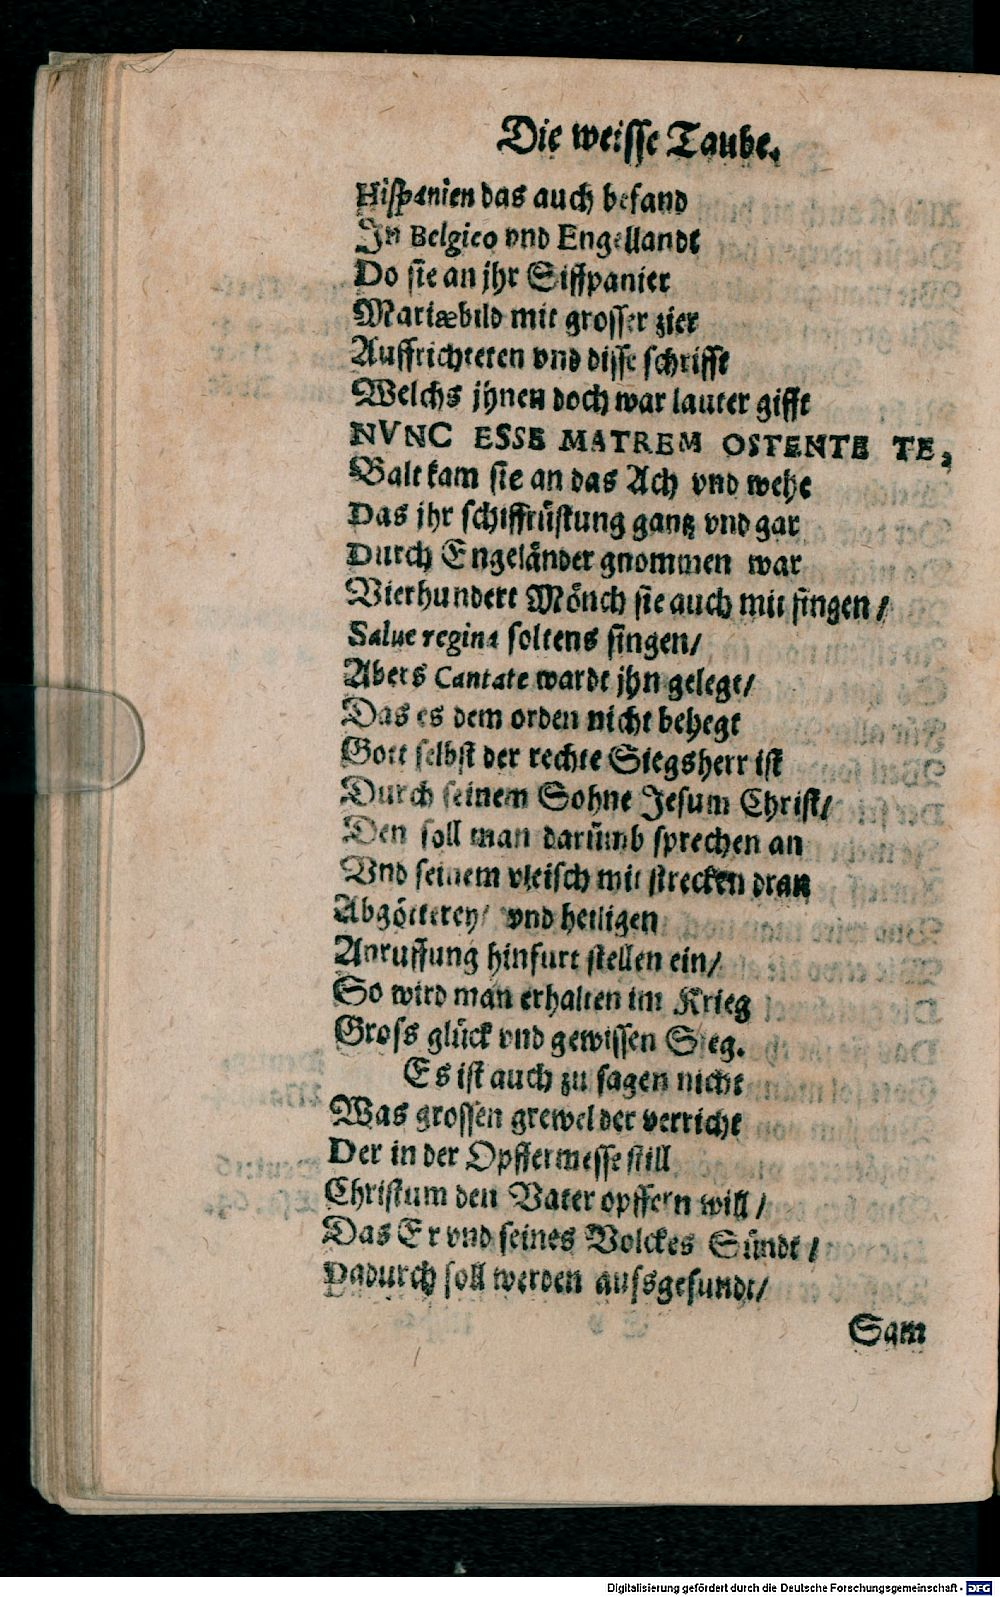 Die weisse Taube.
Hispanien das auch befand
In Belgico vnd Engellandt
Do sie an jhr Siffpanier
Mariæbild mit grosser zier
Auffrichteten vnd disse schrifft
Welchs jhnen doch war lauter gifft
NVNC ESSE MATREM OSTENTE TE,
Balt kam sie an das Ach vnd wehe
Das jhr schiffrüstung gantz vnd gar
Durch Engeländer gnommen war
Vierhundert Mönch sie auch mit fingen /
Salue regina soltens singen/
Abers Cantate wardt jhn gelegt/
Das es dem orden nicht behegt
Gott selbst der rechte Siegsherr ist
Durch seinem Sohne Jesum Christ/
Den soll man darümb sprechen an
Vnd seinem vleisch mit strecken dran
Abgötterey/ vnd heiligen
Anruffung hinfurt stellen ein/
So wird man erhalten im Krieg
Gross glück vnd gewissen Sieg.
Es ist auch zu sagen nicht
Was grossen grewel der verricht
Der in der Opffermesse still
Christum den Vater opffern will /
Das Er vnd seines Volckes Sündt /
Dadurch soll werden aussgesundt/
Sam
Digitalisierung gefördert durch die Deutsche Forschungsgemeinschaft - DFG